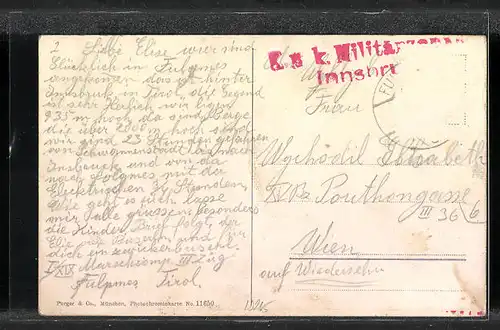 2 Liebe Elise wier sind
Glücklich in Fulpmes
angekommen das ist hinter
Innsbruck in Tirol, die Gegend
ist sehr Herlich wir liegen
935 m hoch da sind Berge
die über 2000 m hoch sind
wir sind 23 Stunden gefahren
von bis nach
Innsbruck und von da
nach Folpmes mit der
Electrischen Stonden,
Wie geht es euch lasse
mir alle grüssen besonders
die Kinder, Brief folgt, der
und für
dich ein
XIV Marschkomp III Zug
Fulpmes Tirol.
K. u. k. Militärzensur
Innsbru
Frau
Wychodil Elisabeth
XVI/2 Pouthongasse
III 36/6
Wien
auf Wiedersehn
Purger & Co., München, Photochromiekarte No. 11650